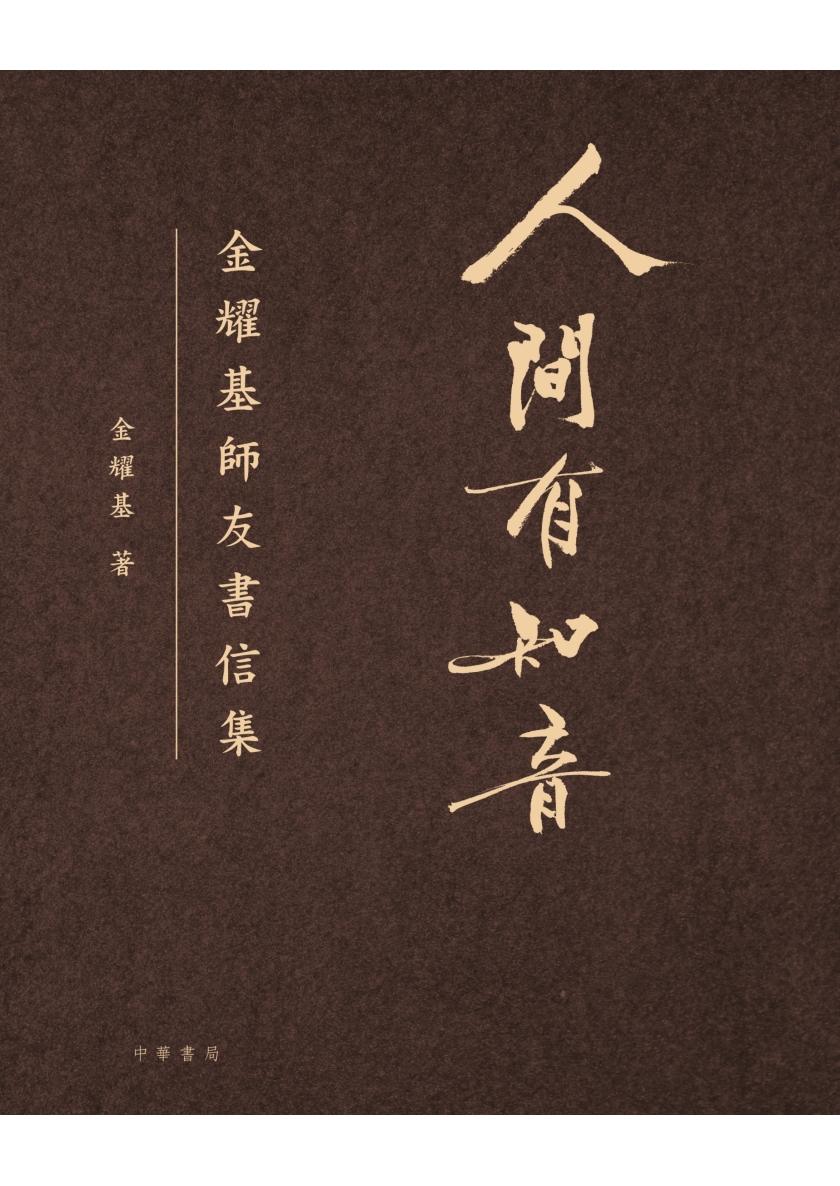 人間有知音
金耀基師友書信集
金耀基 著
中華書局